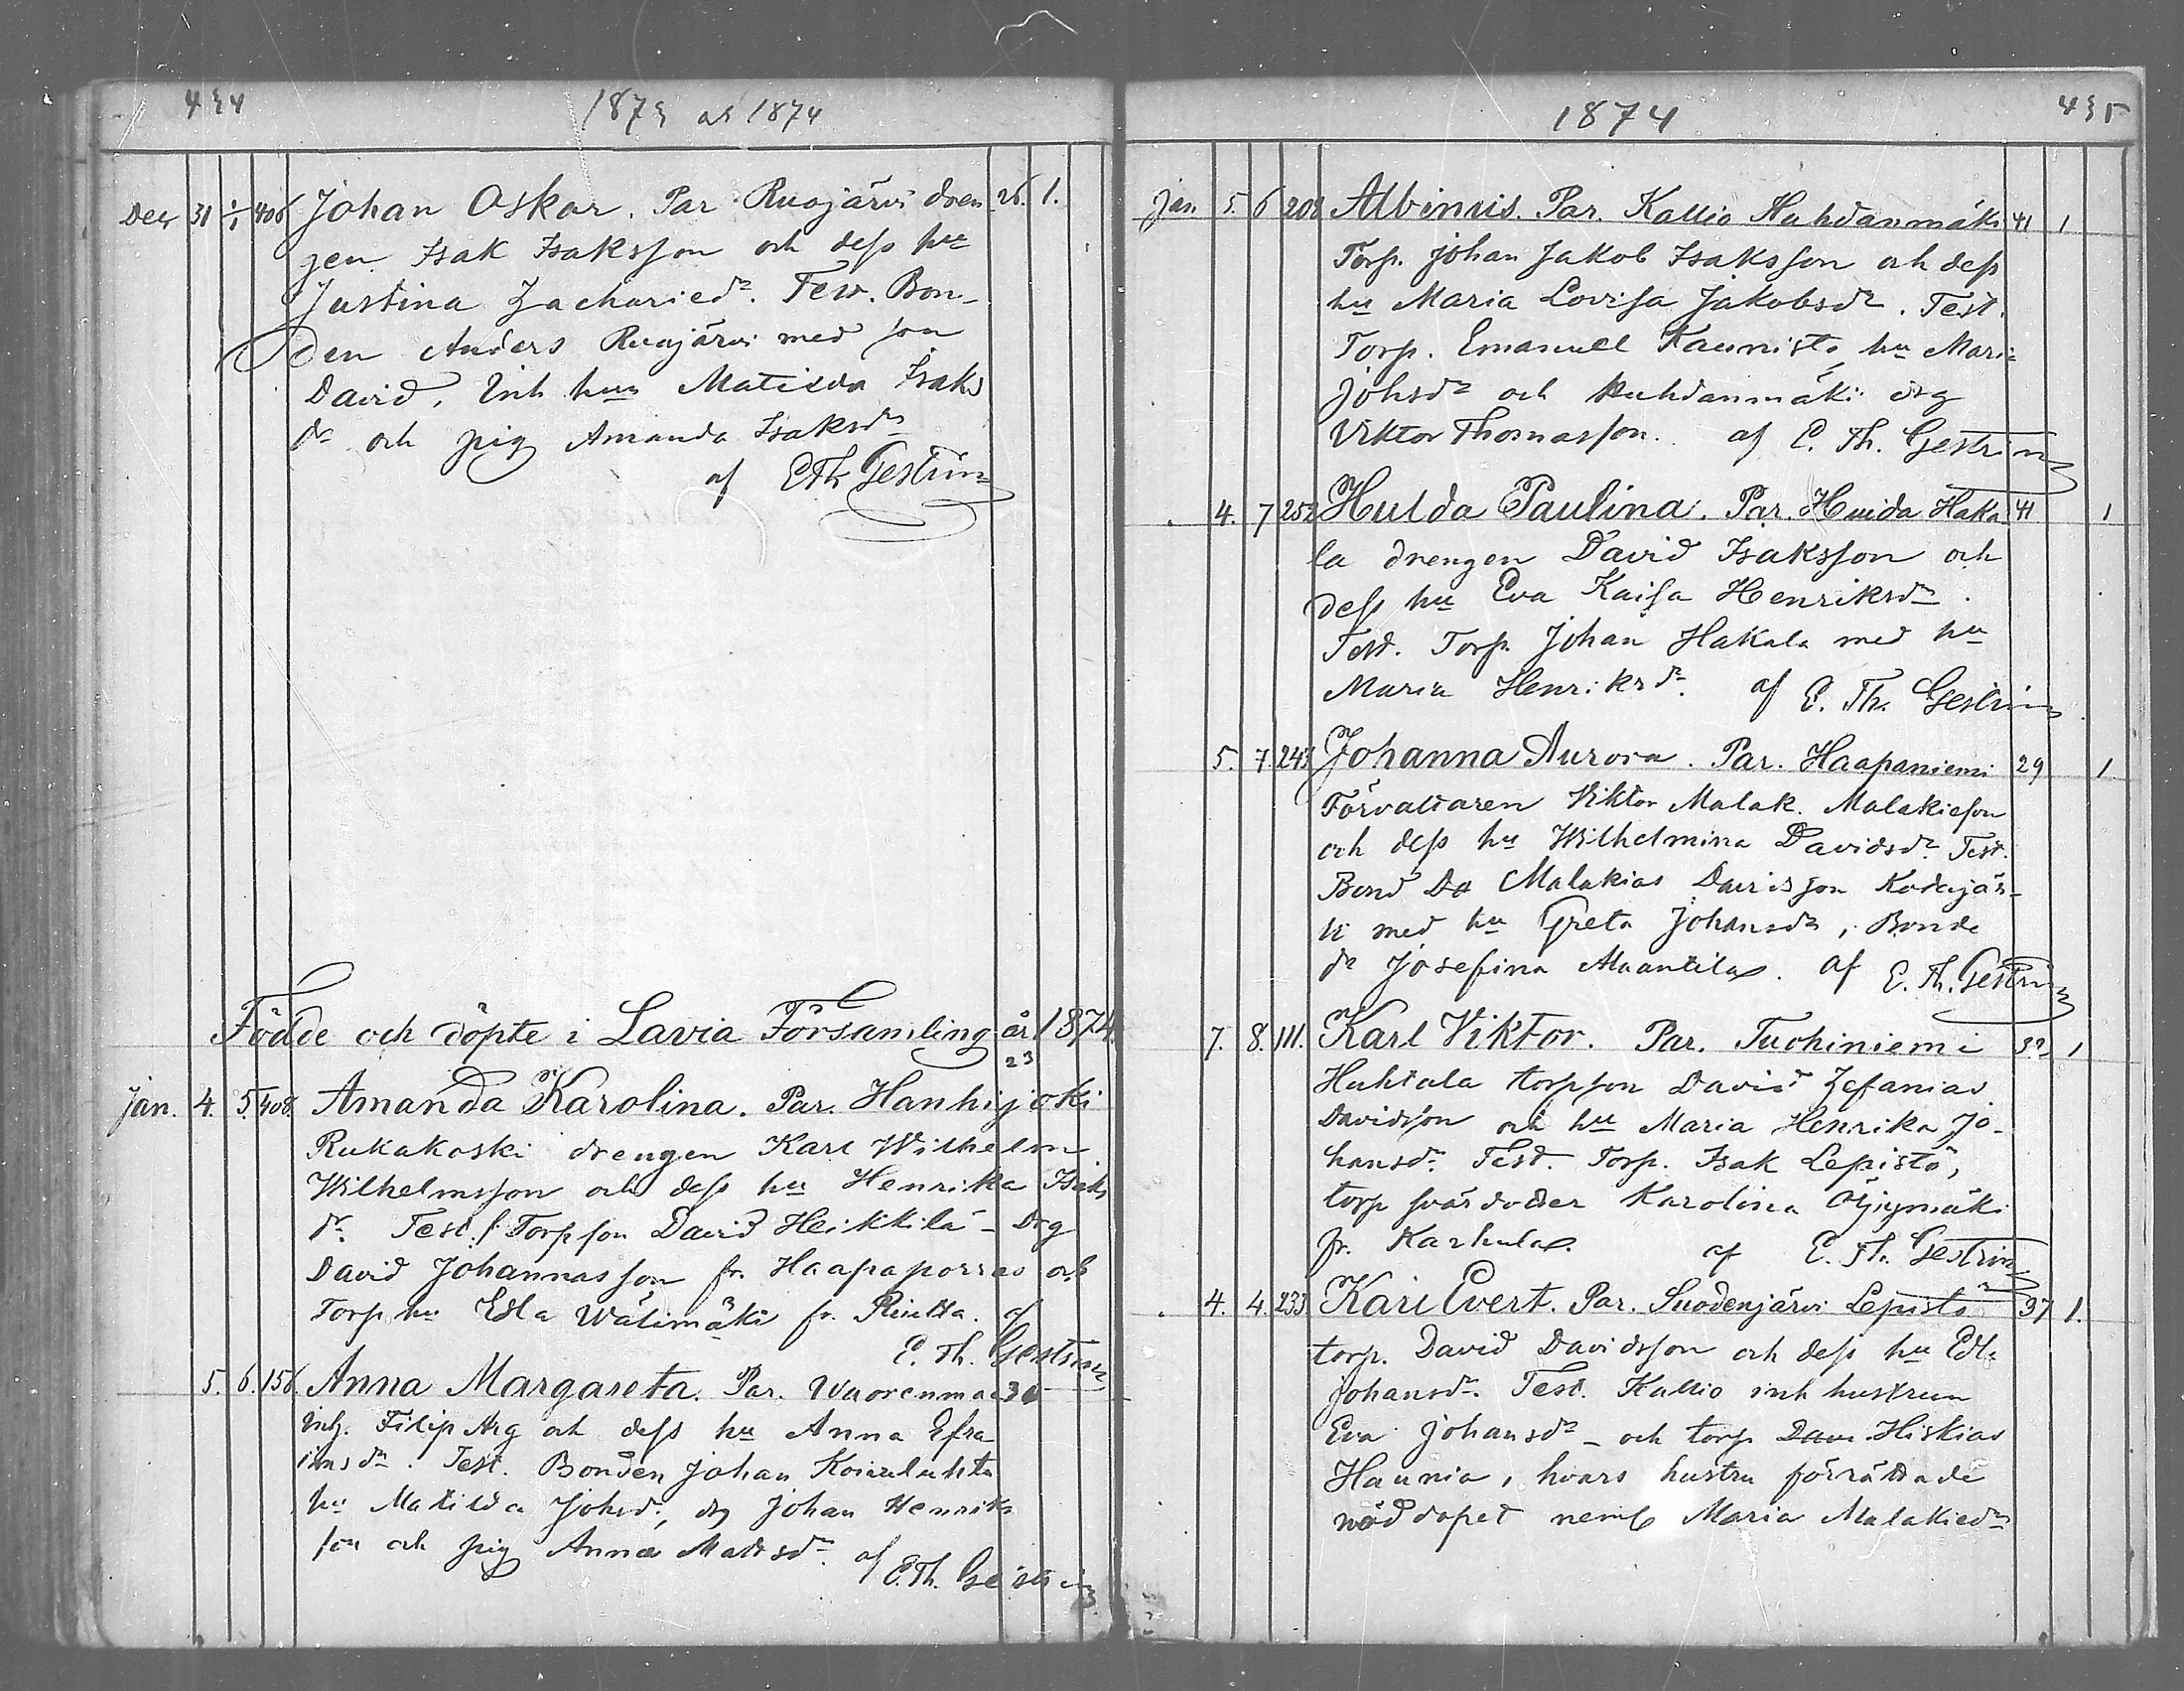 434 1873 och 1874
Dec 31 1/1 406 Johan Oskar. Par Ruojärvi dren- 26. 1.
gen Isak Isaksson och dess hu
Justina Zacharied:r. Test. Bon-
den Anders Ruojärvi med son
David, Inh hun Matilda Isaks
dr och pig Amanda Isaksdr
af E Th Gestrin
Födde och döpte i Lavia Församling år 1874.
23
Jan. 4. 5. 408. Amanda Karolina. Par. Hanhijoki
Rukakoski drengen Karl Wilhelm
Wilhelmsson och dess hu Henrika Isaks
dr. Test. Torpson David Heikkilä - Drg
David Johannasson fr. Haapaporras och
Torp hu Edla Wälimäki fr. Riutta. af
E. Th. Gestrin
5. 6. 156. Anna Margareta. Par. Wuorenmaa 30
Inh. Filip Arg och dess hu Anna Efra-
imsdr. Test. Bonden Johan
hu Matilda Johsdr, drg Johan Henriks
son och pig Anna Mattsdr. af
E. Th. Gestrin
1874 435
Jan. 5. 6 208 Albinus. Par. Kallio Huhdanmäki 41 1
Torp. Johan Jakob Isaksson och dess
hu Maria Lovisa Jakobsdr. Test.
Torp. Emanuel Kaunisto, hu Maria
Johsdr och Huhdanmäki drg
Viktor Thomasson. af E. Th. Gestrin
4. 7 252 Hulda Paulina. Par. Huida Haka- 41 1
la drengen David Isaksson och
dess hu Eva Kaisa Henriksdr.
Test. Torp. Johan Hakala med hu
Maria Henriksdr. af E. Th. Gestrin
5. 7. 243 Johanna Aurora. Par. Haapaniemi 29 1
Förvaltaren Viktor Malak. Malakieson
och dess hu Wilhelmina Davidsdr. Test.
Bond Da Malakias Davidsson Kodajär-
vi med hu Greta Johansdr, Bonde
dr Josefina Alaantila. af E. Th. Gestrin
7. 8. 111. Karl Viktor. Par. Tuohiniemi 32 1
Huhtala torpson David Zefanias
Davidsson och hu Maria Henrika Jo-
hansdr. Test. Torp. Isak Lepistö,
torp svärdotter Karolina Öijymäki
fr. Karhula. af E. Th. Gestrin
4. 4. 233. Karl Evert. Par. Suodenjärvi Lepistö 37 1.
torp. David Davidsson och dess hu Edla
Johansdr. Test. Kallio inh hustrun
Eva Johansdr - och torp Dav. Hiskias
Haunia, hvars hustru förrättade
nöddopet neml Maria Malakiedr